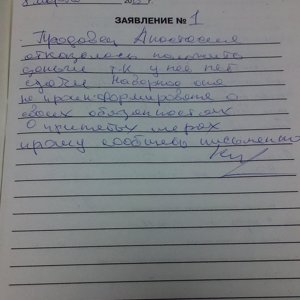 ЗАЯВЛЕНИЕ № 1
Продавец Анастасия
отказалась положить
деньги т.к. у нее нет
сдачи Наверное она
не проинформирована о
своих обязанностях
О принятых мерах
прошу сообщить письменно